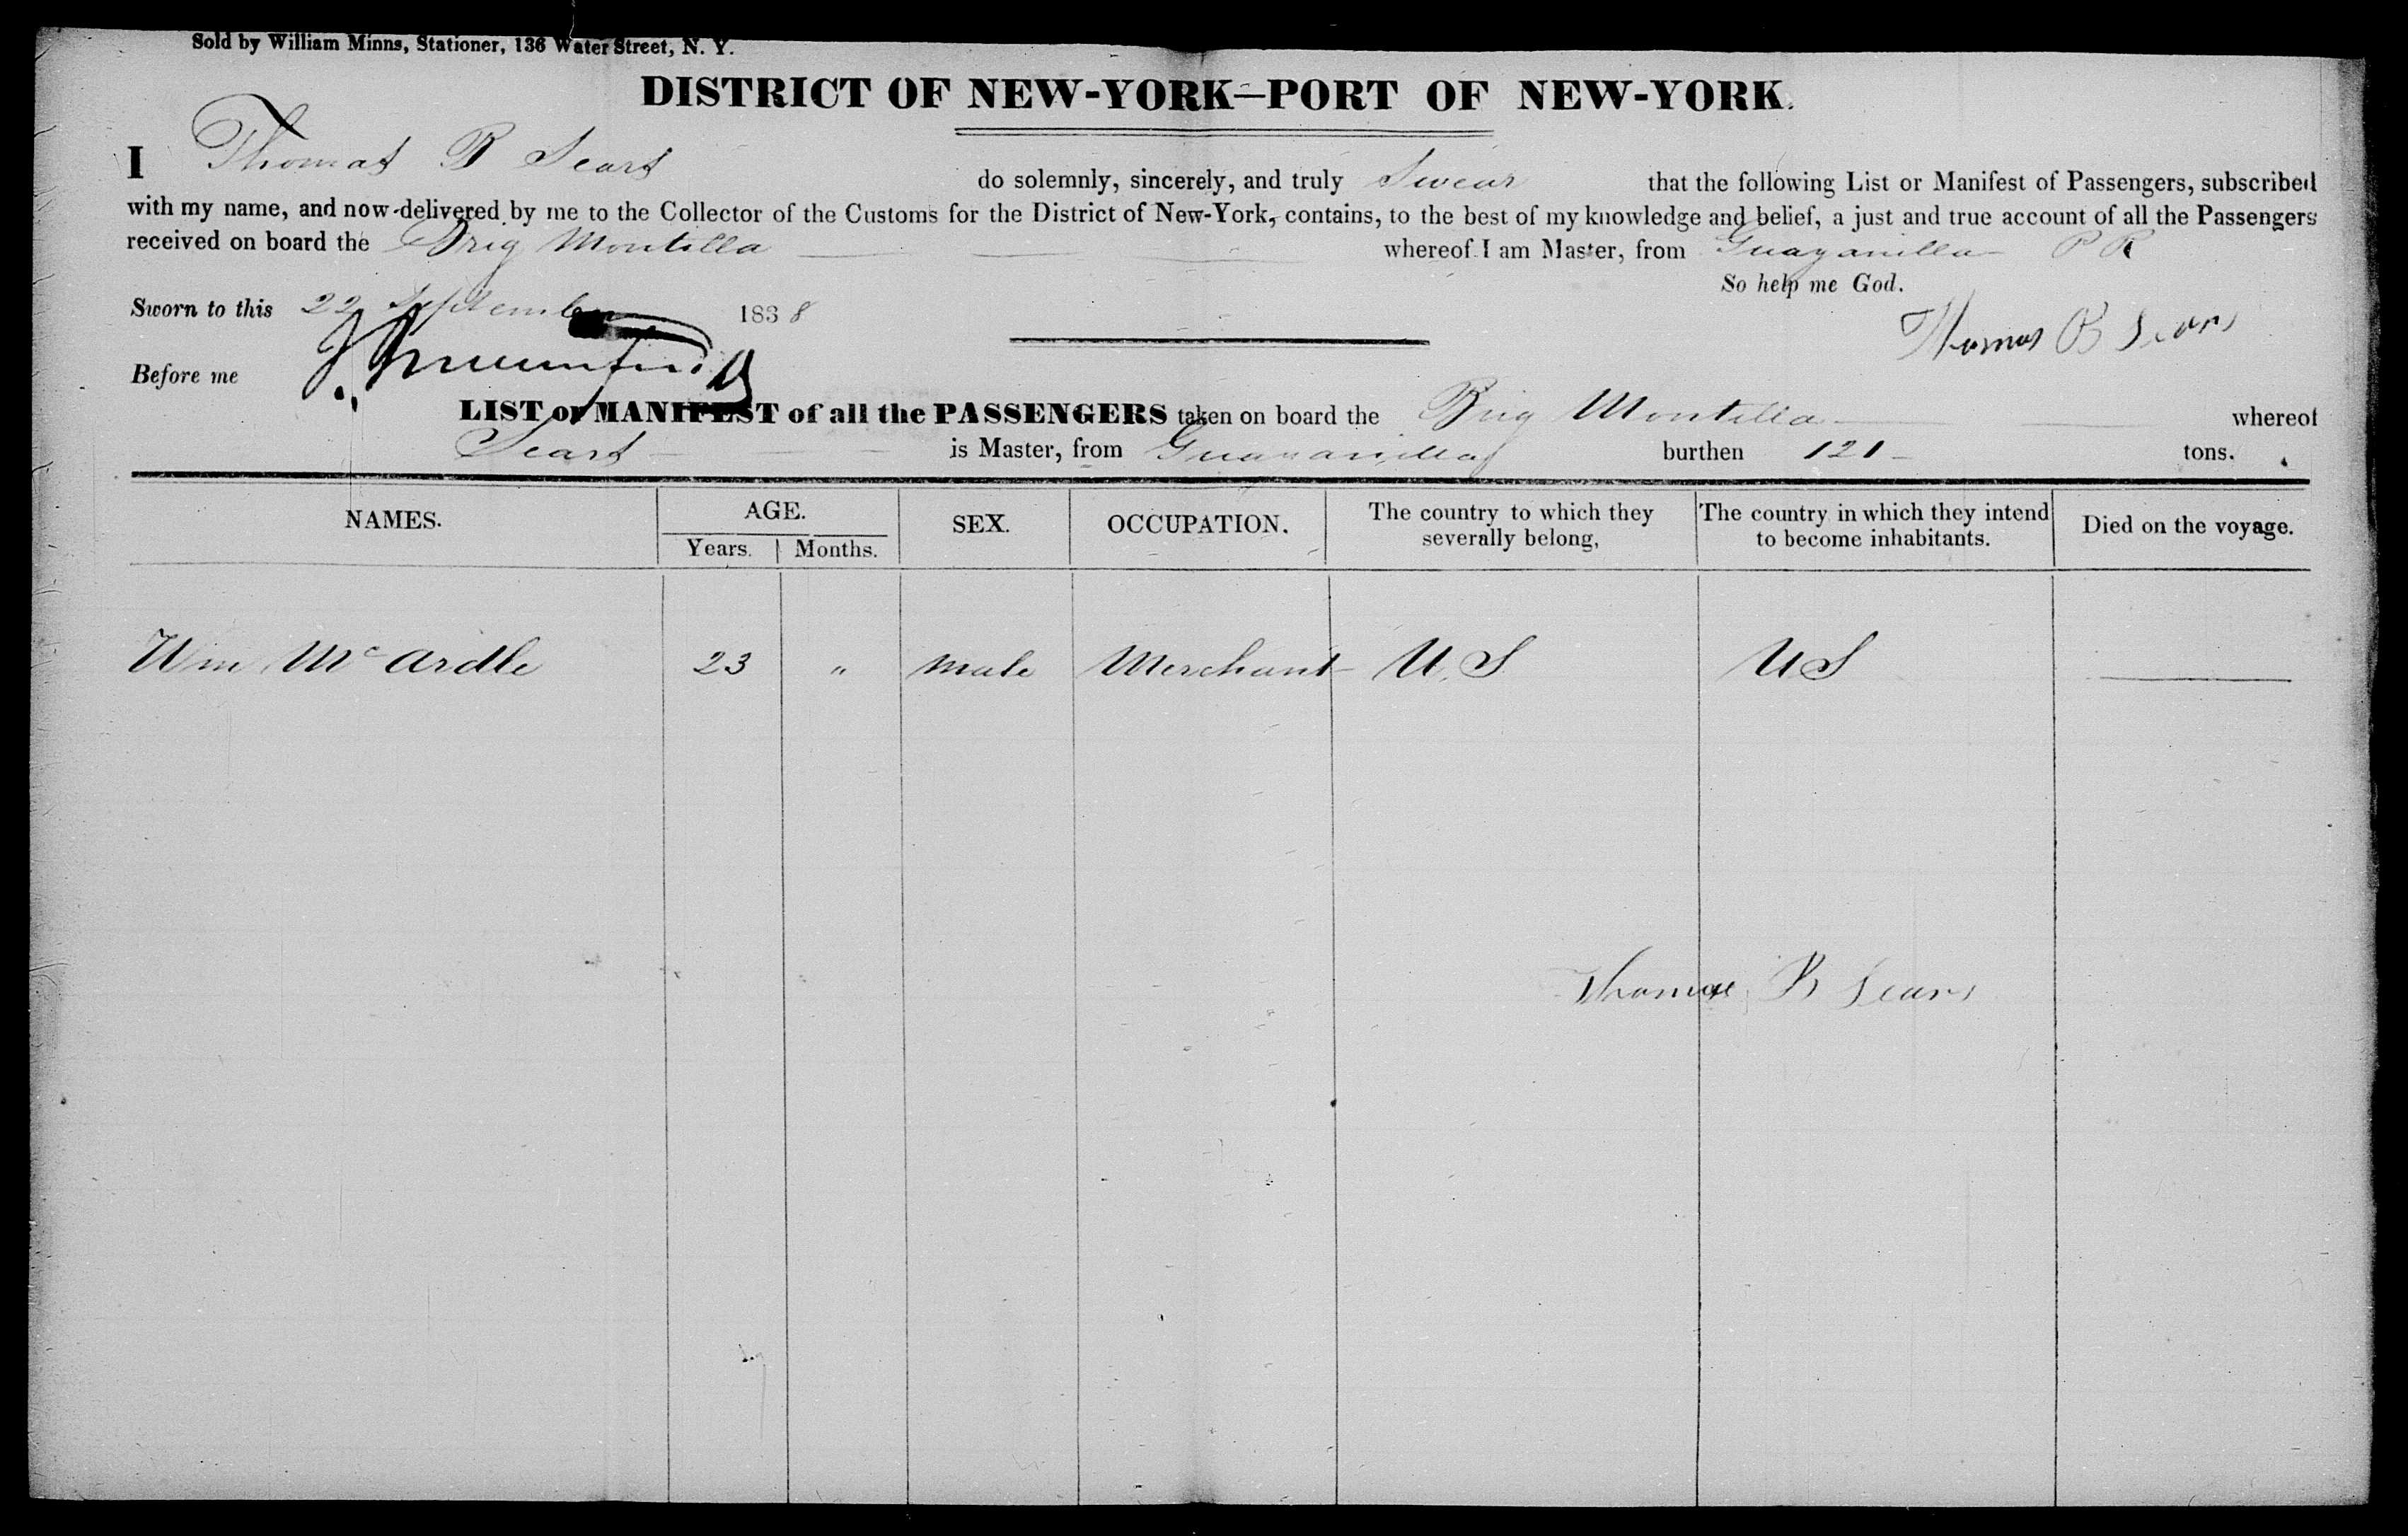 Sold by William Minns, Stationer, 136 Water Street, N. Y.
DISTRICT OF NEW-YORK—PORT OF NEW-YORK.
I Thomas B Sears do solemnly, sincerely, and truly Swear that the following List or Manifest of Passengers, subscribed
with my name, and now delivered by me to the Collector of the Customs for the District of New-York, contains, to the best of my knowledge and belief, a just and true account of all the Passengers
received on board the Brig Montilla whereof I am Master, from Guayanilla P R
So help me God.
Sworn to this 22 September 1838
Thomas B Sears
Before me
LIST or MANIFEST of all the PASSENGERS taken on board the Brig Montilla whereof
Sears is Master, from Guayanilla burthen 121 tons.
NAMES. AGE. SEX. OCCUPATION. The country to which they severally belong, The country in which they intend to become inhabitants. Died on the voyage.
Years. Months.
Wm McArdle 23 " male Merchant U.S US
Thomas B Sears